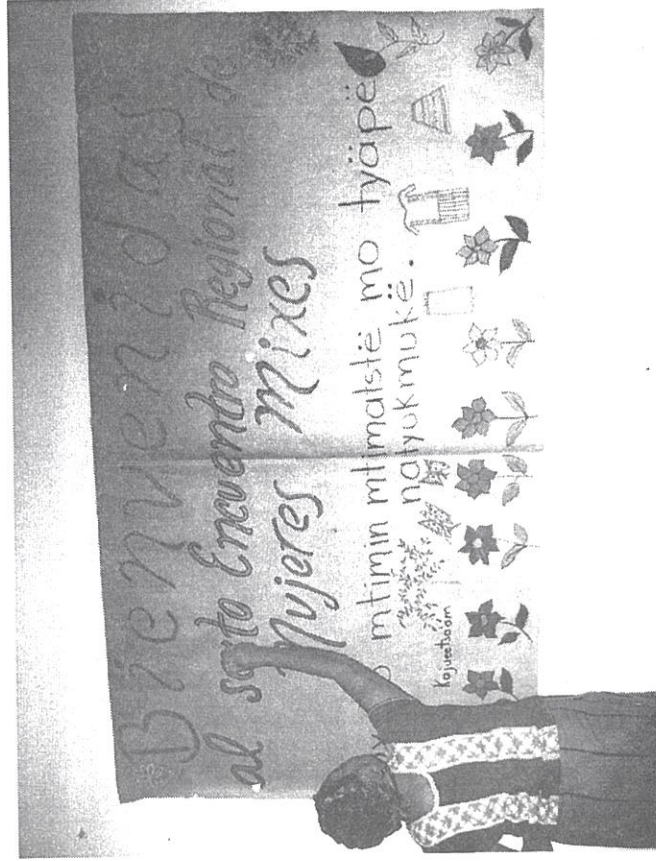 Bienvenidas
al sexto Encuentro Regional de
Mujeres Mixes
mtimin mtimatstë mo tyäpë
natyukmukë.
Kajueetsoom